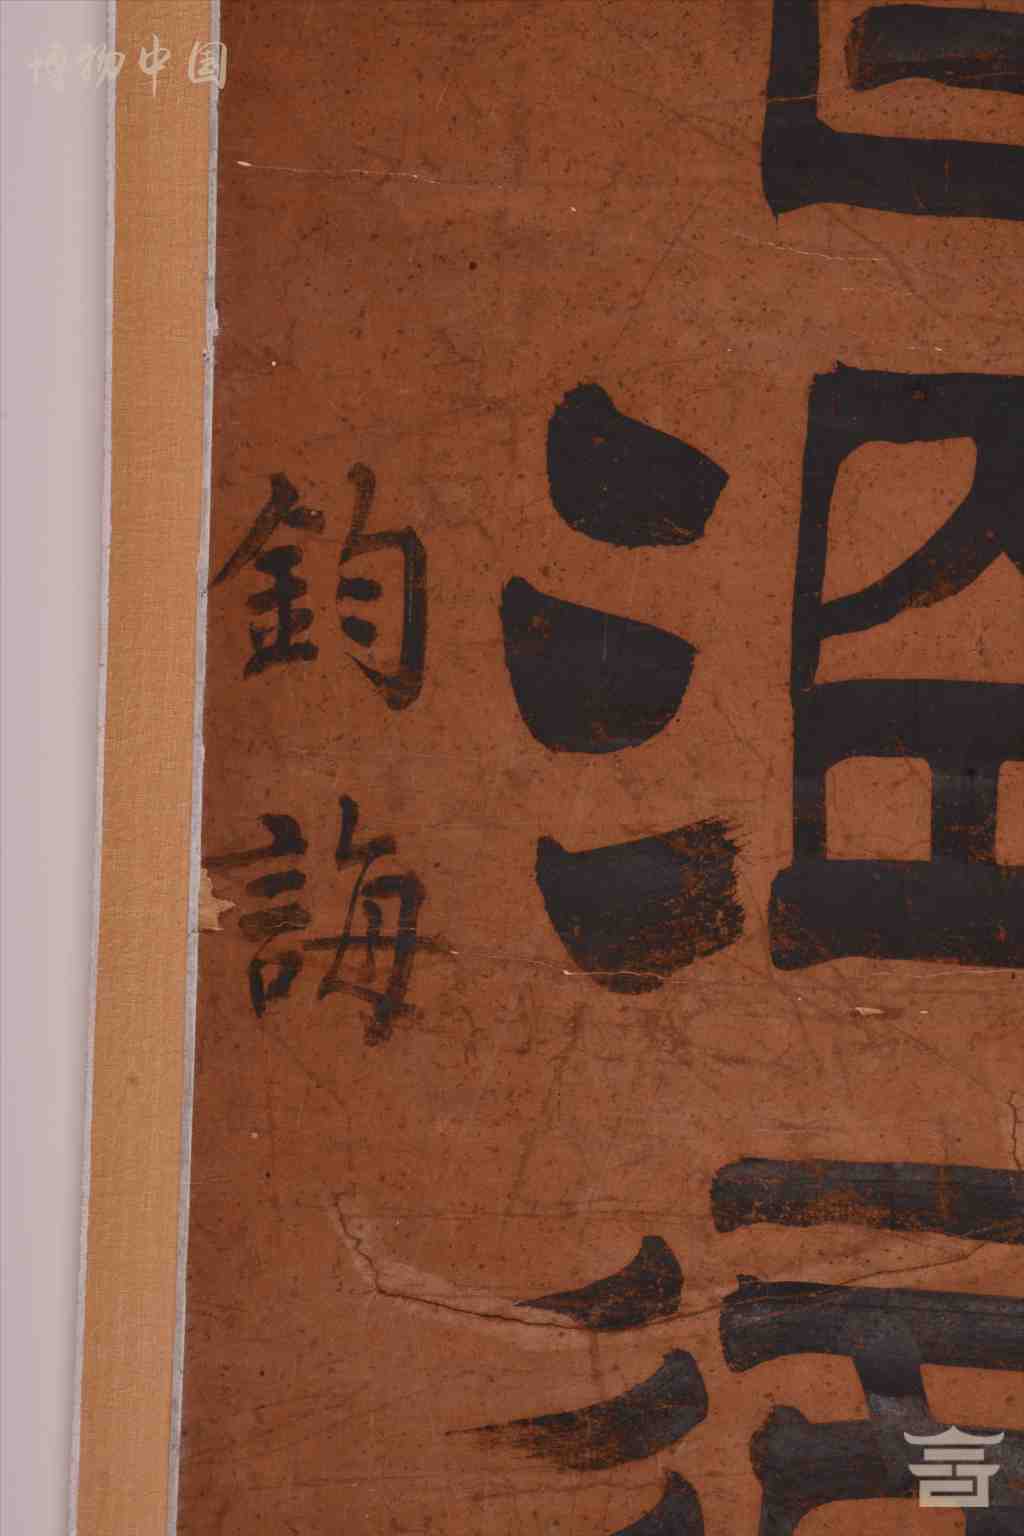 博物中国
溫
鈞誨